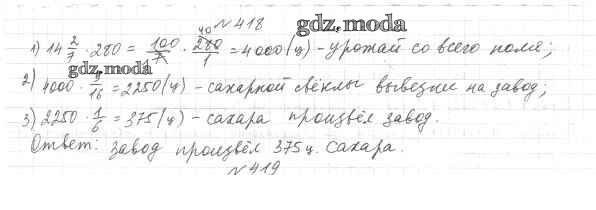 № 418
gdz.moda
1) 14 2/7 · 280 = 100/7 · 280/1 = 4000 (ц) – урожай со всего поля;
gdz.moda
2) 4000 · 9/16 = 2250 (ц) – сахарной свёклы вывезли на завод;
3) 2250 · 1/6 = 375 (ц) – сахара произвёл завод.
Ответ: завод произвёл 375 ц. сахара.
№ 419